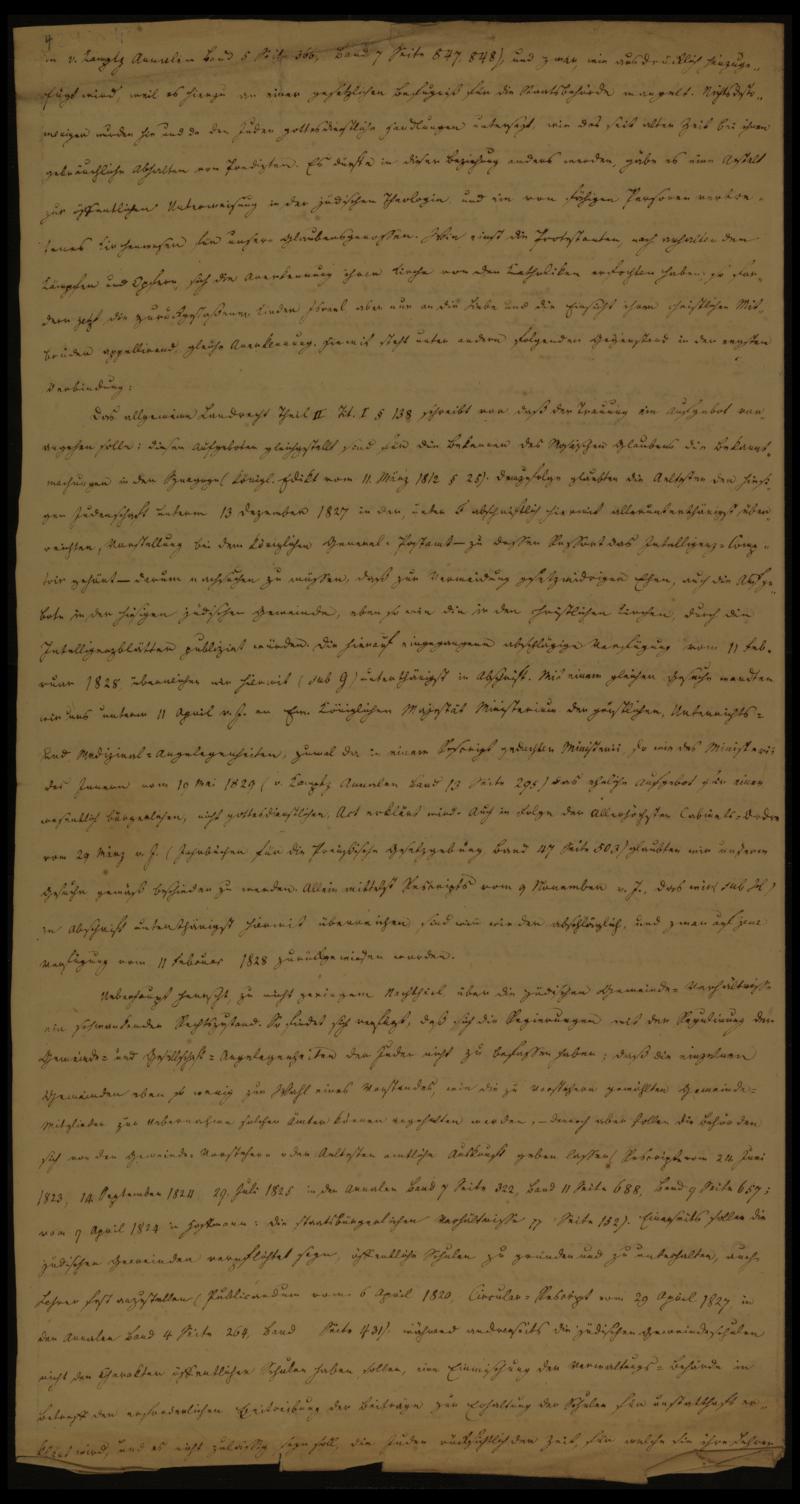 4
in v. Kamptz Annalen Band 5 Seite 366, Band 7 Seite 847, 848), und zwar, wie ausdrücklich hinzuge-
fügt wird, weil es hierzu an einer gesetzlichen Befugniß für die Staatsbehörde mangelt. Nichtsdesto-
weniger wurden hie und da den Juden gottesdienstliche Handlungen untersagt, wie das seit alter Zeit bei ihnen
gebräuchliche Abhalten von Predigten. Es dürfte in dieser Beziehung anders werden, gäbe es eine Anstalt
zur öffentlichen Unterweisung in der jüdischen Theologie, und ein von fähigen Personen vertre-
tenes Kirchenwesen für unsere Glaubensgenossen. Wie einst die Protestanten, nach anhaltenden
Kämpfen und Opfern, sich die Anerkennung ihrer Kirche von den Katholiken erfochten haben: so for-
dern jetzt die zurückgelassenen Kinder Israel aber nur an die Liebe und die Einsicht ihrer christlichen Mit-
brüder appellirend, gleiche Anerkennung. Hiermit steht unter andern folgender Gegenstand in der engsten
Verbindung:
Das allgemeine Landrecht Theil II Tit. I § 138 schreibt vor, daß der Trauung ein Aufgebot vor-
angehen solle: diesen Aufgeboten gleichgestellt sind für die Bekenner des Mosaischen Glaubens die Bekannt-
machungen in der Synagoge (Königl. Edikt vom 11. März 1812 § 25). Demzufolge glaubten die Aeltesten der hiesi-
gen Judenschaft unterm 13 Dezember 1827 in der, unter abschriftlich hiermit allerunterthänigst über-
reichten, Vorstellung bei dem Königlichen General-Postamt – zu dessen Ressort das Intelligenz-Comp-
toir gehört – darum nachsuchen zu müssen, daß zur Vermeidung gesetzwidriger Ehen, auch die Aufge-
bote in der hiesigen jüdischen Gemeinde, eben so wie die in den christlichen Kirchen, durch die
Intelligenzblätter publizirt würden. Die hierauf eingegangene abschlägige Verfügung vom 11 Feb-
ruar 1828 überreichen wir hiermit (sub 9) unterthänigst in Abschrift. Mit einem gleichen Gesuche wandten
wir uns unterm 11 April v. J. an Ew. Königlichen Majestät Ministerium der geistlichen, Unterrichts-
und Medizinal-Angelegenheiten, zumal da in einem Rescript gedachten Ministerii, so wie des Ministerii
des Innern vom 19 Mai 1829 (v. Kamptz Annalen Band 13 Seite 295) das eheliche Aufgebot für einen
wesentlich bürgerlichen, nicht gottesdienstlichen, Act erklärt wird. Auch in Folge der Allerhöchsten Cabinets-Ordre
vom 29 März v. J. (Jahrbücher für die Preußische Gesetzgebung, Band 47 Seite 503) glaubten wir unserm
Gesuche gemäß beschieden zu werden. Allein mittelst Rescripts vom 9 November v. J., das wir (sub )
in Abschrift unterthänigst hiermit überreichen, sind wir wieder abschläglich, und zwar auf jene
Verfügung vom 11 Februar 1828 zurückgewiesen worden.
Ueberhaupt herrscht, zu nicht geringem Nachtheil über die jüdischen Gemeinde-Verhältnisse
ein schwankender Rechtszustand. So findet sich verfügt, daß sich die Regierungen mit der Regulirung der
Gemeinde- und Gesellschaft-Angelegenheiten der Juden nicht zu befassen haben; daß die einzelnen
Gemeinden eben so wenig zur Wahl eines Vorstandes, wie die zu Vorstehern gewählten Gemeinde-
Mitglieder zur Uebernahme solcher Ämter können angehalten werden, – dennoch aber sollen die Behörden
sich von den Gemeinde-Vorstehern oder Aeltesten amtliche Auskunft geben lassen (Rescripte vom 24 Juni
1823, 14. September 1824, 29. Juli 1825 in den Annalen Band 7 Seite 322, Band 11 Seite 688, Band 9 Seite 657;
vom 9 April 1824 in Hoffmann: die staatsbürgerlichen Verhältnisse pp Seite 152). Einerseits sollen die
jüdischen Gemeinden verpflichtet seyn, öffentliche Schulen zu gründen und zu unterhalten, auch
Lehrer fest anzustellen (Publicandum vom 6 April 1820, Circular-Rescript vom 29 April 1827 in
den Annalen Band 4 Seite 264, Band Seite 431) während andrerseits die jüdischen Gemeindeschulen
nicht den Charakter öffentlicher Schulen haben sollen, eine Einmischung der Verwaltungs-Behörde in
Betreff der erforderlichen Beitreibung der Beiträge zur Erhaltung der Schulen für unstatthaft er-
klärt wird, und es nicht zulässig seyn soll, die Juden rücksichtlich der Zeit, für welche sie ihre Lehrer